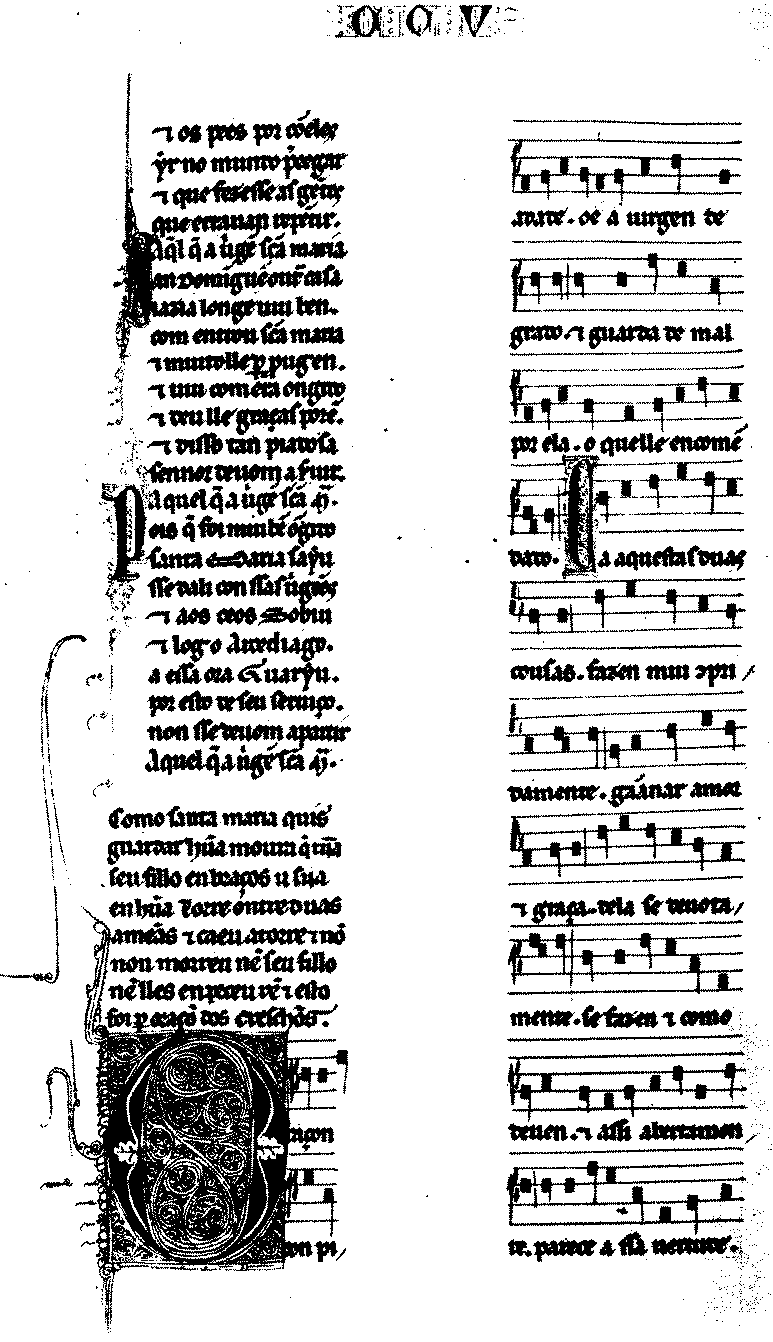 C C V
⁊ os pees por coller
yr no munto pregar
⁊ que fezesse as gentes
que errauan repentir.
Aql q̃ a uirgẽ sc̃a maria
San Domingue outr casa
Maria longe uiu ben.
com entrou sc̃a maria
⁊
⁊ uiu com era ongito
⁊ deu lle graças porẽ.
⁊ disso tan piadosa
sennor deuom a seruir.
Aquel q̃ a uirgẽ sc̃a M̃.
Pois q̃ foi muit ẽ ogito
santa Maria sayu
sse dali con ssas uirgẽes
⁊ aos ceos Sobiu
⁊ logo Arcediago.
a essa ora Guaryu.
por esto de seu seruiço.
non sse deuom a partir
Aquel q̃ a uirgẽ sc̃a M̃.
Como santa maria quis
guardar hũa moura q̃ tĩia
seu fillo en braços u siia
en hũa Torre ontre duas
ameãs ⁊ caeu a torre ⁊ nõ
non morreu nẽ seu fillo
nẽ lles enpeeceu rẽ ⁊ esto
foi p oraçõ dos crischõs.
Oraçon
con pi
adade . oe a uirgen de
grado. ⁊ guarda de mal
por ela . o quelle encomẽ
dado. Ca aquestas duas
cousas. fazen mui ↄpri
damente. gaãnar amor
⁊ graça. dela se deuota
mente. se fazen ⁊ como
deuen. ⁊ assi abertamen
te. parece a ssa uertude.